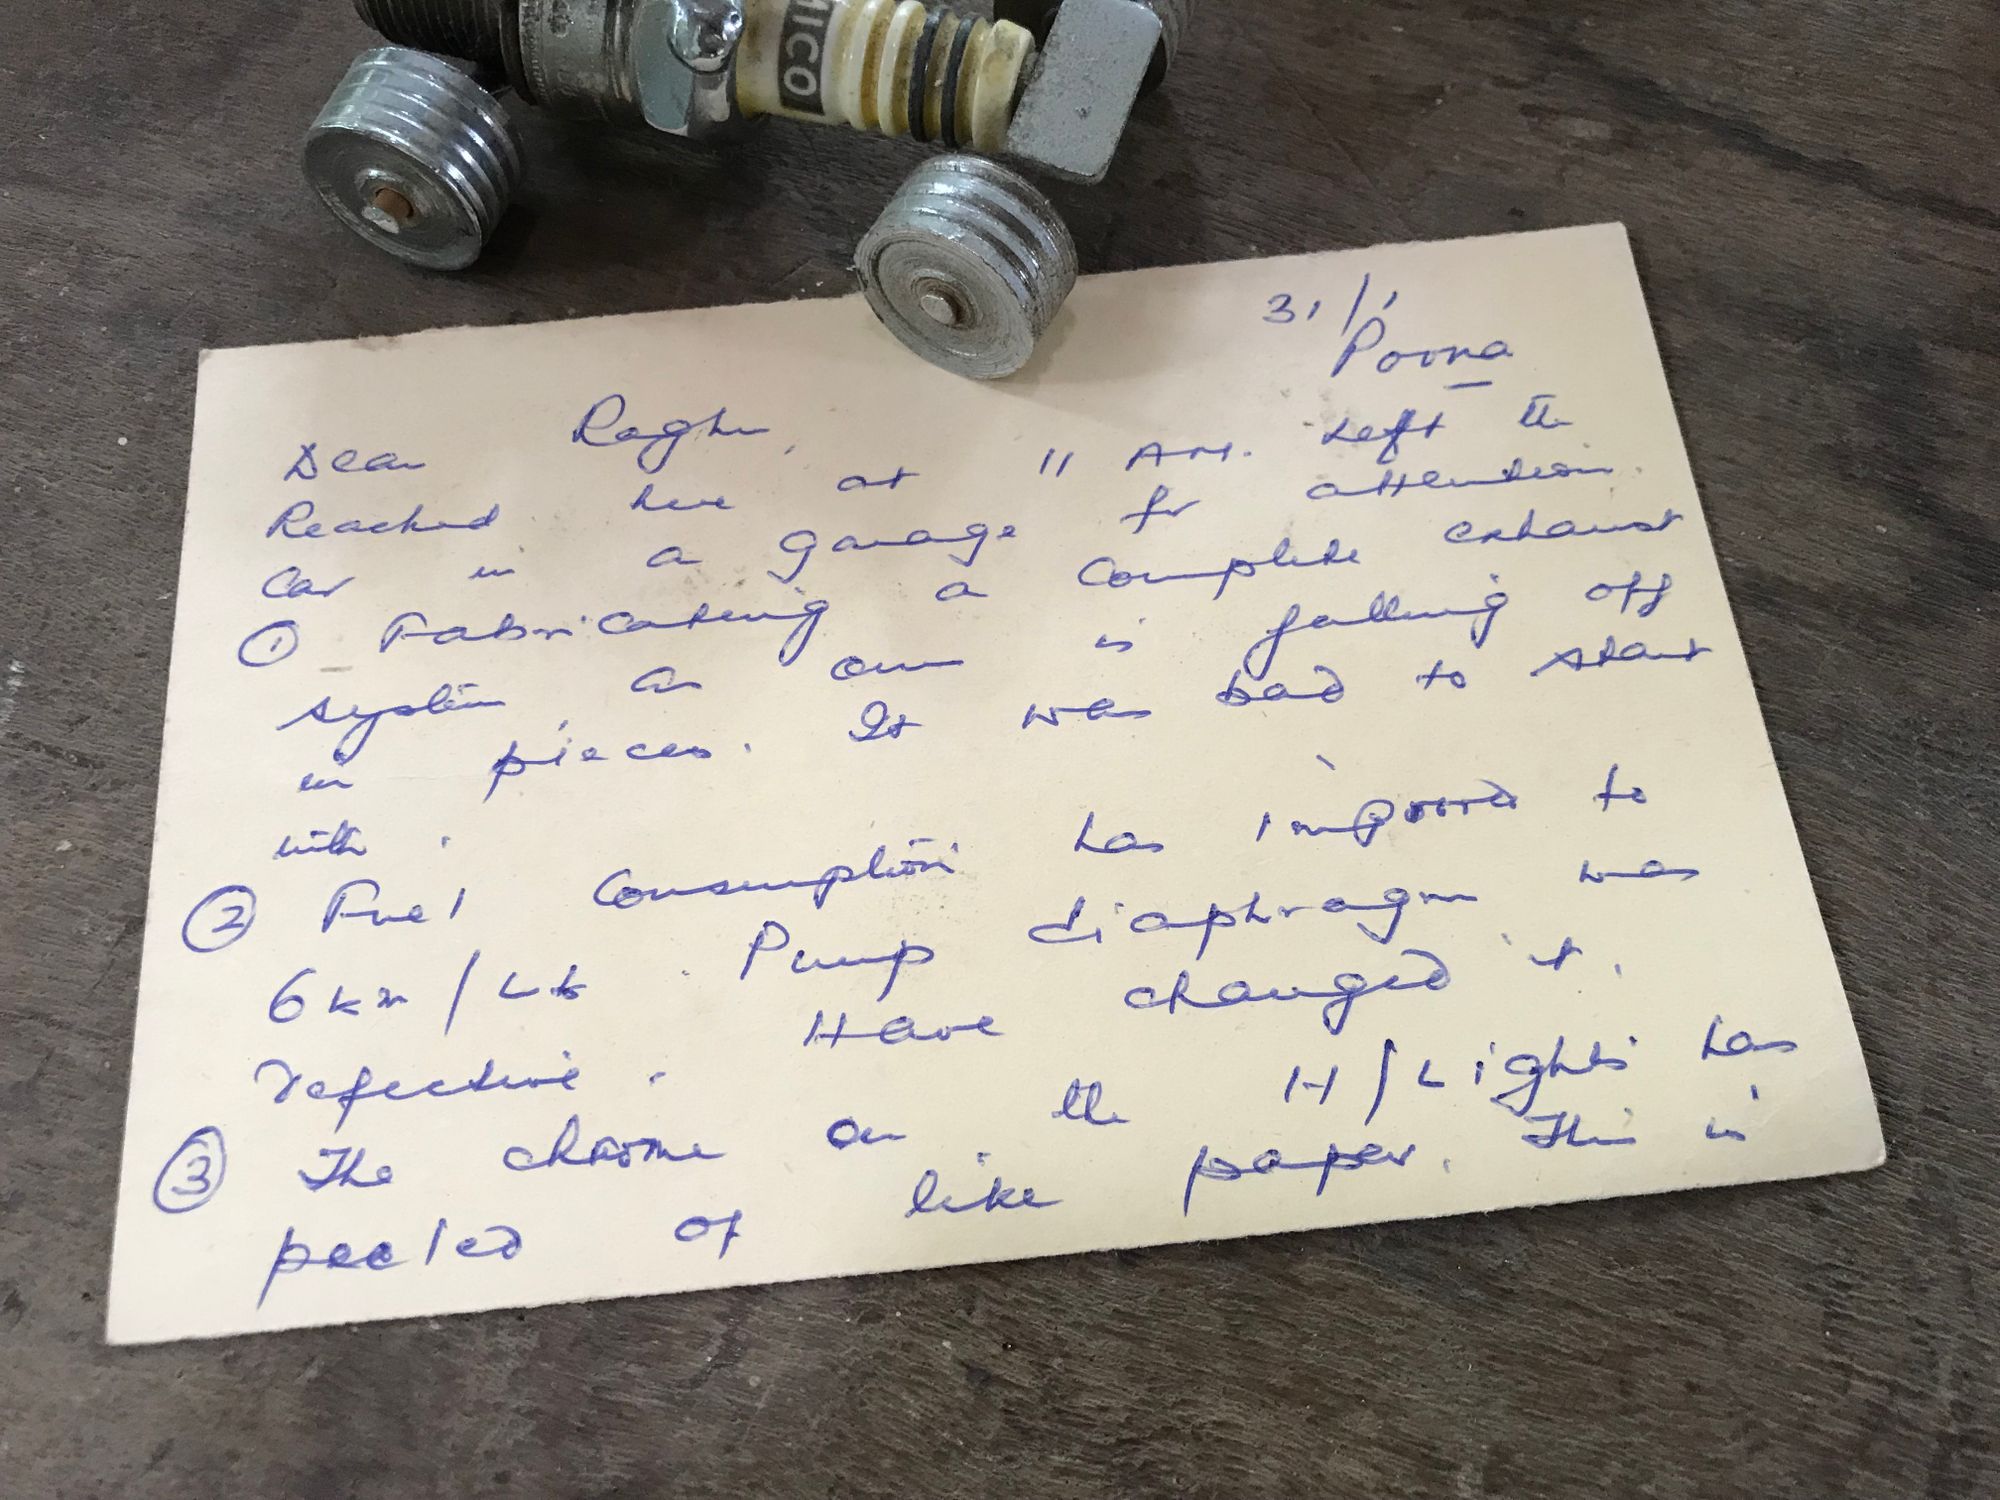 MICO
31/1
Poona
Dear Raghu,
Reached here at 11 AM. Left the
Car in a garage for attention.
① Fabricating a complete exhaust
system as our is falling off
in pieces. It was bad to start
with.
② Fuel Consumption has improved to
6 km/Lt. Pump diaphragm was
defective. Have changed it.
③ The chrome on the H/Lights has
peeled of like paper. This is